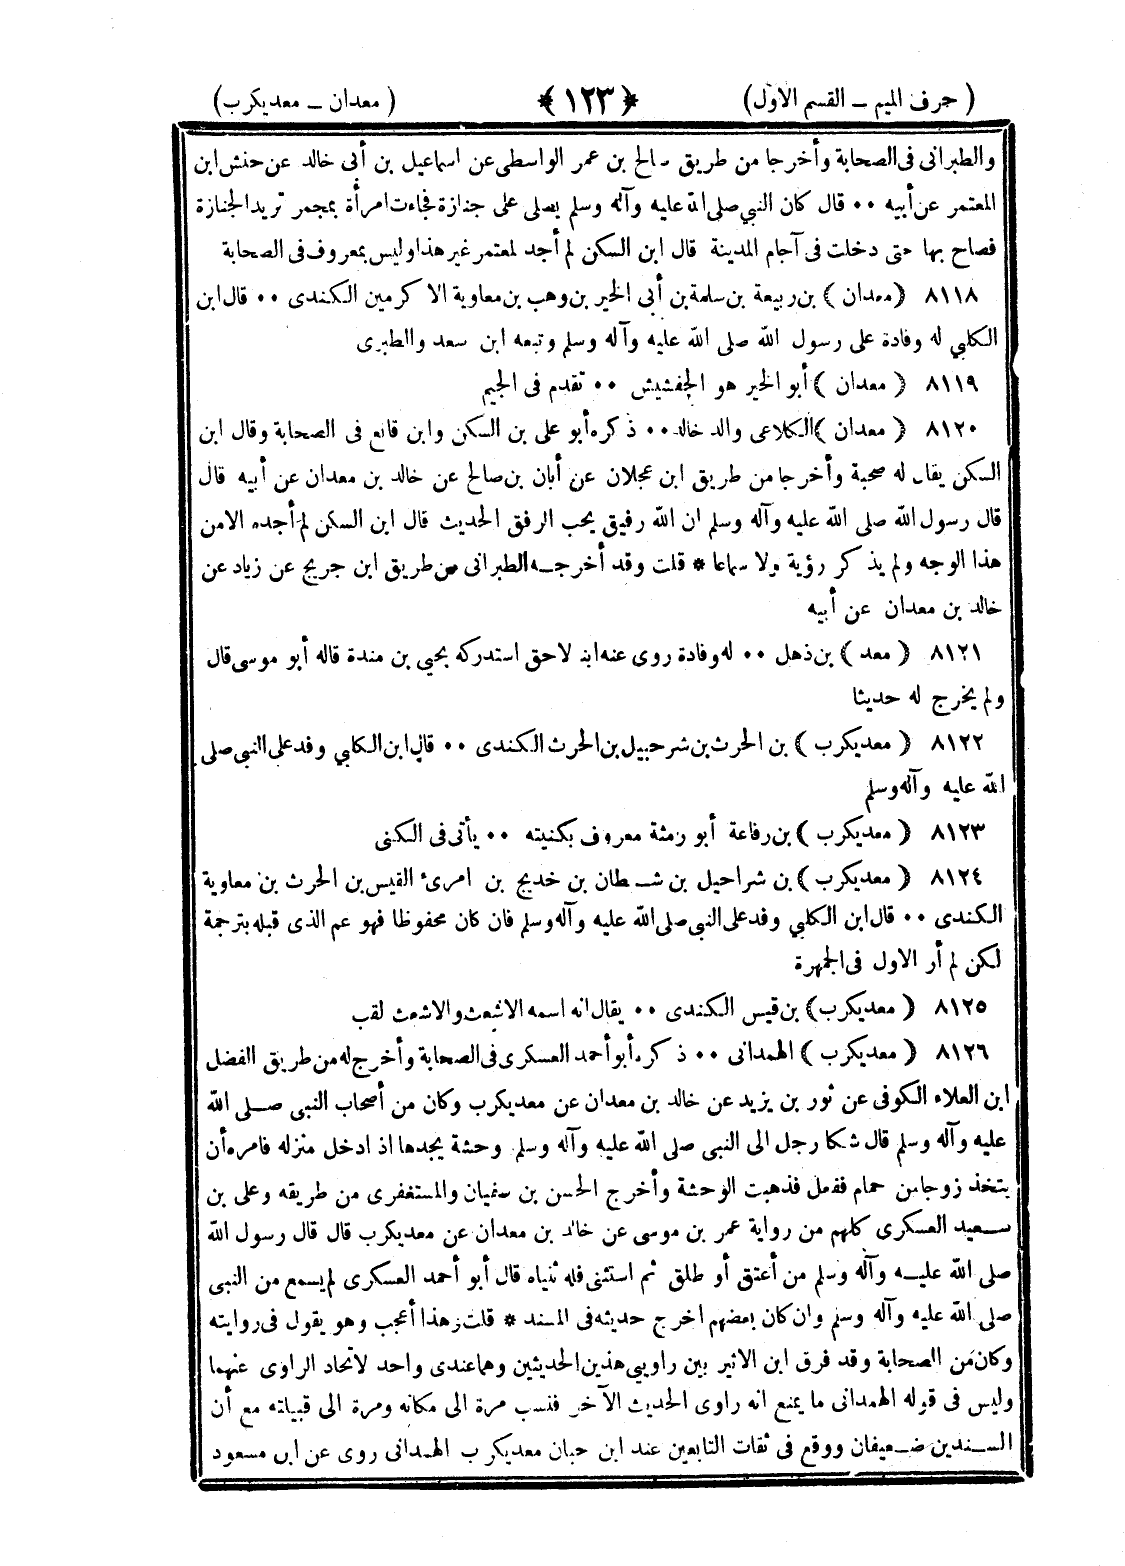 ( حرف الميم – القسم الاول) ﴿ ١٢٣ ﴾ ( معدان – معديكرب)
والطبرانى فى الصحابة وأخرجا من طريق صالح بن عمر الواسطى عن اسماعيل بن أبى خالد عن حنش ابن
المعتمر عن أبيه ٠٠ قال كان النبي صلى الله عليه وآله وسلم يصلى على جنازة فجاءت امرأة بمجمر تريد الجنازة
فصاح بها حتى دخلت فى آجام المدينة قال ابن السكن لم أجد لمعتمر غير هذا وليس بمعروف فى الصحابة
٨١١٨ ( معدان ) بن ربيعة بن سلمة بن أبى الخير بن وهب بن معاوية الاكرمين الكندى ٠٠ قال ابن
الكلبي له وفادة على رسول الله صلى الله عليه وآله وسلم وتبعه ابن سعد والطبرى
٨١١٩ ( معدان ) أبو الخير هو الجفشيش ٠٠ تقدم فى الجيم
٨١٢٠ ( معدان ) الكلاعى والد خالد ٠٠ ذكره أبو على بن السكن وابن قانع فى الصحابة وقال ابن
السكن يقال له صحبة وأخرجا من طريق ابن عجلان عن أبان بن صالح عن خالد بن معدان عن أبيه قال
قال رسول الله صلى الله عليه وآله وسلم ان الله رفيق يحب الرفق الحديث قال ابن السكن لم أجده الا من
هذا الوجه ولم يذكر رؤية ولا سماعا * قلت وقد أخرجه الطبرانى من طريق ابن جريج عن زياد عن
خالد بن معدان عن أبيه
٨١٢١ ( معد ) بن ذهل ٠٠ له وفادة روى عنه ابنه لاحق استدركه يحيى بن مندة قاله أبو موسى قال
ولم يخرج له حديثا
٨١٢٢ ( معديكرب ) بن الحرث بن شرحبيل بن الحرث الكندى ٠٠ قال ابن الكلبي وفد على النبى صلى
الله عليه وآله وسلم
٨١٢٣ ( معديكرب ) بن رفاعة أبو رمثة معروف بكنيته ٠٠ يأتى فى الكنى
٨١٢٤ ( معديكرب ) بن شراحيل بن شيطان بن خديج بن امرئ القيس بن الحرث بن معاوية
الكندى ٠٠ قال ابن الكلبي وفد على النبى صلى الله عليه وآله وسلم فان كان محفوظا فهو عم الذى قبله بترجمة
لكن لم أر الاول فى الجمهرة
٨١٢٥ ( معديكرب) بن قيس الكندى ٠٠ يقال انه اسمه الاشعث والاشعث لقب
٨١٢٦ ( معديكرب ) الهمدانى ٠٠ ذكره أبو أحمد العسكرى فى الصحابة وأخرج له من طريق الفضل
ابن العلاء الكوفى عن ثور بن يزيد عن خالد بن معدان عن معديكرب وكان من أصحاب النبى صلى الله
عليه وآله وسلم قال شكا رجل الى النبى صلى الله عليه وآله وسلم وحشة يجدها اذ ادخل منزله فامره أن
يتخذ زوجا من حمام ففعل فذهبت الوحشة وأخرج الحسن بن سفيان والمستغفرى من طريقه وعلى بن
سعيد العسكرى كلهم من رواية عمر بن موسى عن خالد بن معدان عن معديكرب قال قال رسول الله
صلى الله عليه وآله وسلم من أعتق أو طلق ثم استثنى فله ثنياه قال أبو أحمد العسكرى لم يسمع من النبى
صلى الله عليه وآله وسلم وان كان بعضهم اخرج حديثه فى المسند * قلت وهذا أعجب وهو يقول فى روايته
وكان من الصحابة وقد فرق ابن الاثير بين راويى هذين الحديثين وهما عندى واحد لاتحاد الراوى عنهما
وليس فى قوله الهمدانى ما يمنع انه راوى الحديث الآخر فنسب مرة الى مكانه ومرة الى قبيلته مع أن
السندين ضعيفان ووقع فى ثقات التابعين عند ابن حبان معديكرب الهمدانى روى عن ابن مسعود